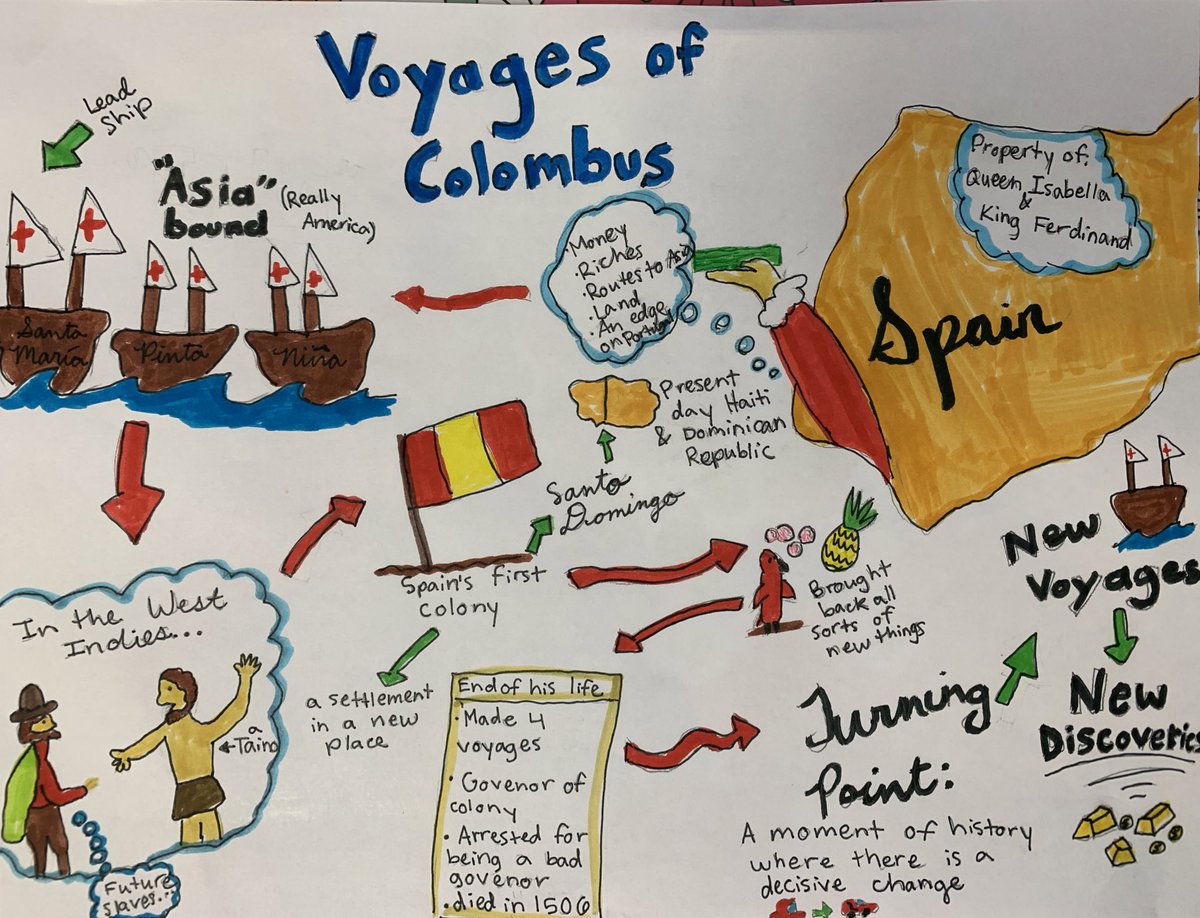 Voyages of
Colombus
Lead
Ship
"Asia"
bound
(Really
America)
Santa
María
Pinta
Niña
Money
· Riches
· Routes to Asia
· Land
· An edge
on Portugal
Property of:
Queen Isabella
&
King Ferdinand
Spain
Present
day Haiti
& Dominican
Republic
Santo
Domingo
Spain's first
colony
a settlement
in a new
place
In the West
Indies...
a
Taino
Future
slaves...
Brought
back all
sorts of
new things
End of his life
· Made 4
voyages
· Govenor of
colony
· Arrested for
being a bad
govenor
· died in 1506
Turning
Point:
A moment of history
where there is a
decisive change
New
Voyages
New
Discoveries